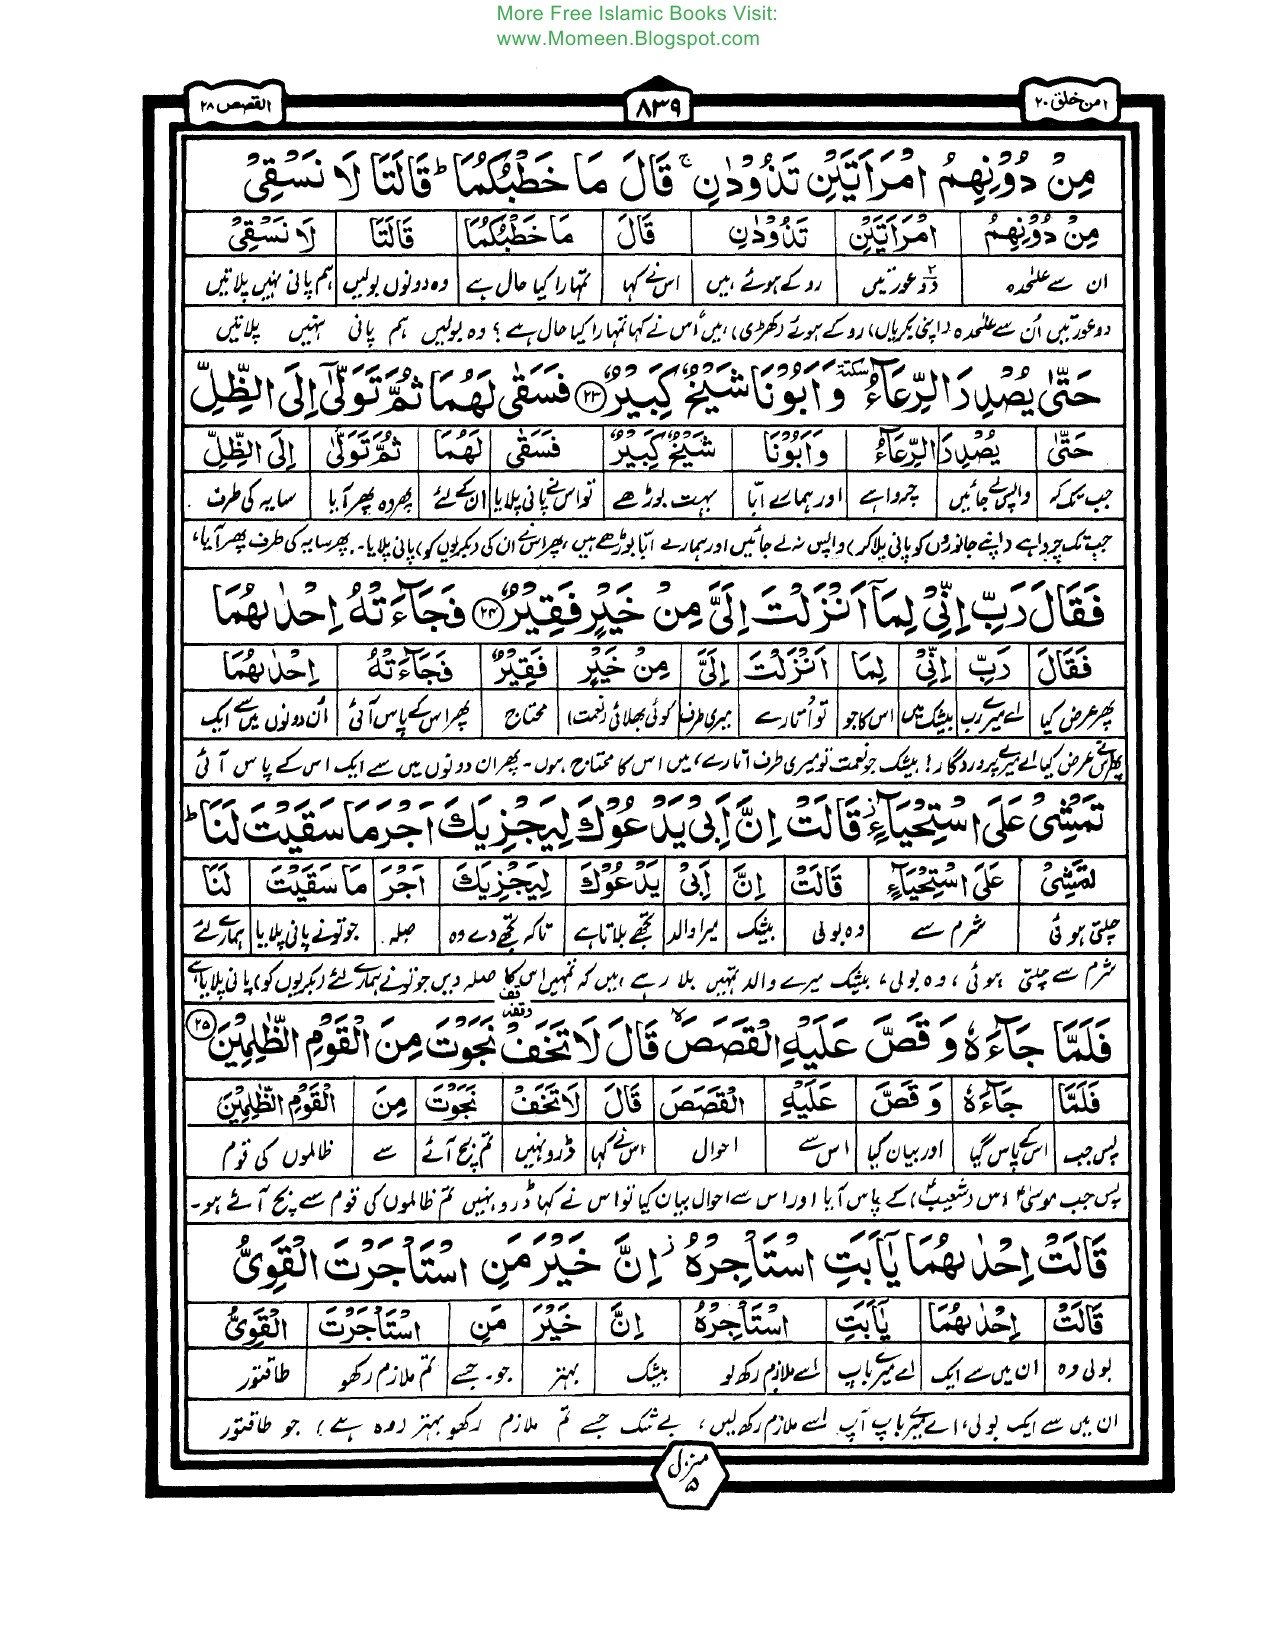 More Free Islamic Books Visit:
www.Momeen.Blogspot.com
امن خلق ۲۰ ۸۳۹ القصص ۲۸
مِنْ دُوْنِهِمُ امْرَاَتَيْنِ تَذُوْدٰنِ ۚ قَالَ مَا خَطْبُكُمَا ؕ قَالَتَا لَا نَسْقِیْ
مِنْ دُوْنِهِمُ امْرَاَتَيْنِ تَذُوْدٰنِ قَالَ مَا خَطْبُكُمَا قَالَتَا لَا نَسْقِیْ
ان سے علٰحدہ دو عورتیں روکے ہوئے ہیں اس نے کہا تمہارا کیا حال ہے وہ دونوں بولیں ہم پانی نہیں پلاتیں
دو عورتیں اُن سے علٰحدہ (اپنی بکریاں) روکے ہوئے (کھڑی) ہیں اُس نے کہا تمہارا کیا حال ہے؟ وہ بولیں ہم پانی نہیں پلاتیں
حَتّٰی يُصْدِرَ الرِّعَآءُ ٚ وَاَبُوْنَا شَيْخٌ كَبِيْرٌ ۲۳ فَسَقٰی لَهُمَا ثُمَّ تَوَلّٰۤی اِلَی الظِّلِّ
حَتّٰی يُصْدِرَ الرِّعَآءُ وَاَبُوْنَا شَيْخٌ كَبِيْرٌ فَسَقٰی لَهُمَا ثُمَّ تَوَلّٰی اِلَی الظِّلِّ
جب تک کہ واپس لے جائیں چرواہے اور ہمارے ابّا بہت بوڑھے تو اس نے پانی پلایا ان کے لئے پھر وہ پھر آیا سایہ کی طرف
جب تک چرواہے (اپنے جانوروں کو پانی پلا کر) واپس نہ لے جائیں اور ہمارے ابّا بوڑھے ہیں، پھر اس نے ان کی (بکریوں کو) پانی پلایا۔ پھر سایہ کی طرف پھر آیا،
فَقَالَ رَبِّ اِنِّیْ لِمَاۤ اَنْزَلْتَ اِلَیَّ مِنْ خَيْرٍ فَقِيْرٌ ۲۴ فَجَآءَتْهُ اِحْدٰىهُمَا
فَقَالَ رَبِّ اِنِّیْ لِمَا اَنْزَلْتَ اِلَیَّ مِنْ خَيْرٍ فَقِيْرٌ فَجَآءَتْهُ اِحْدٰىهُمَا
پھر عرض کیا اے میرے رب بیشک میں اس کا جو تو اُتارے میری طرف کوئی بھلائی (نعمت) محتاج پھر اس کے پاس آئی اُن دونوں میں سے ایک
پھر اس نے عرض کیا اے میرے پروردگار! بیشک جو نعمت تو میری طرف اتارے، میں اس کا محتاج ہوں۔ پھر ان دونوں میں سے ایک اس کے پاس آئی
تَمْشِیْ عَلَی اسْتِحْيَآءٍ ؗ قَالَتْ اِنَّ اَبِیْ يَدْعُوْكَ لِيَجْزِيَكَ اَجْرَ مَا سَقَيْتَ لَنَا ؕ
تَمْشِیْ عَلَی اسْتِحْيَآءٍ قَالَتْ اِنَّ اَبِیْ يَدْعُوْكَ لِيَجْزِيَكَ اَجْرَ مَا سَقَيْتَ لَنَا
چلتی ہوئی شرم سے وہ بولی بیشک میرا والد تجھے بلاتا ہے تاکہ تجھے دے وہ صلہ جو تونے پانی پلایا ہمارے لئے
شرم سے چلتی ہوئی، وہ بولی، بیشک میرے والد تمہیں بلا رہے ہیں کہ تمہیں اس کا صلہ دیں جو تونے ہمارے لئے (بکریوں کو) پانی پلایا ہے
فَلَمَّا جَآءَهٗ وَ قَصَّ عَلَيْهِ الْقَصَصَ ۙ قَالَ لَا تَخَفْ نَجَوْتَ مِنَ الْقَوْمِ الظّٰلِمِيْنَ ۲۵
فَلَمَّا جَآءَهٗ وَ قَصَّ عَلَيْهِ الْقَصَصَ قَالَ لَا تَخَفْ نَجَوْتَ مِنَ الْقَوْمِ الظّٰلِمِيْنَ
پس جب اس کے پاس گیا اور بیان کیا اس سے احوال اس نے کہا ڈرو نہیں تم بچ آئے سے ظالموں کی قوم
پس جب موسیٰؑ اس (شعیبؑ) کے پاس آیا اور اس سے احوال بیان کیا تو اس نے کہا ڈرو نہیں تم ظالموں کی قوم سے بچ آئے ہو۔
قَالَتْ اِحْدٰىهُمَا يٰۤاَبَتِ اسْتَاْجِرْهُ ؗ اِنَّ خَيْرَ مَنِ اسْتَاْجَرْتَ الْقَوِیُّ
قَالَتْ اِحْدٰىهُمَا يٰۤاَبَتِ اسْتَاْجِرْهُ اِنَّ خَيْرَ مَنِ اسْتَاْجَرْتَ الْقَوِیُّ
بولی وہ ان میں سے ایک اے میرے باپ اسے ملازم رکھ لو بیشک بہتر جو۔ جسے تم ملازم رکھو طاقتور
ان میں سے ایک بولی، اے میرے باپ آپ اسے ملازم رکھ لیں، بے شک جسے تم ملازم رکھو بہتر (وہ ہے) جو طاقتور
منزل ۵